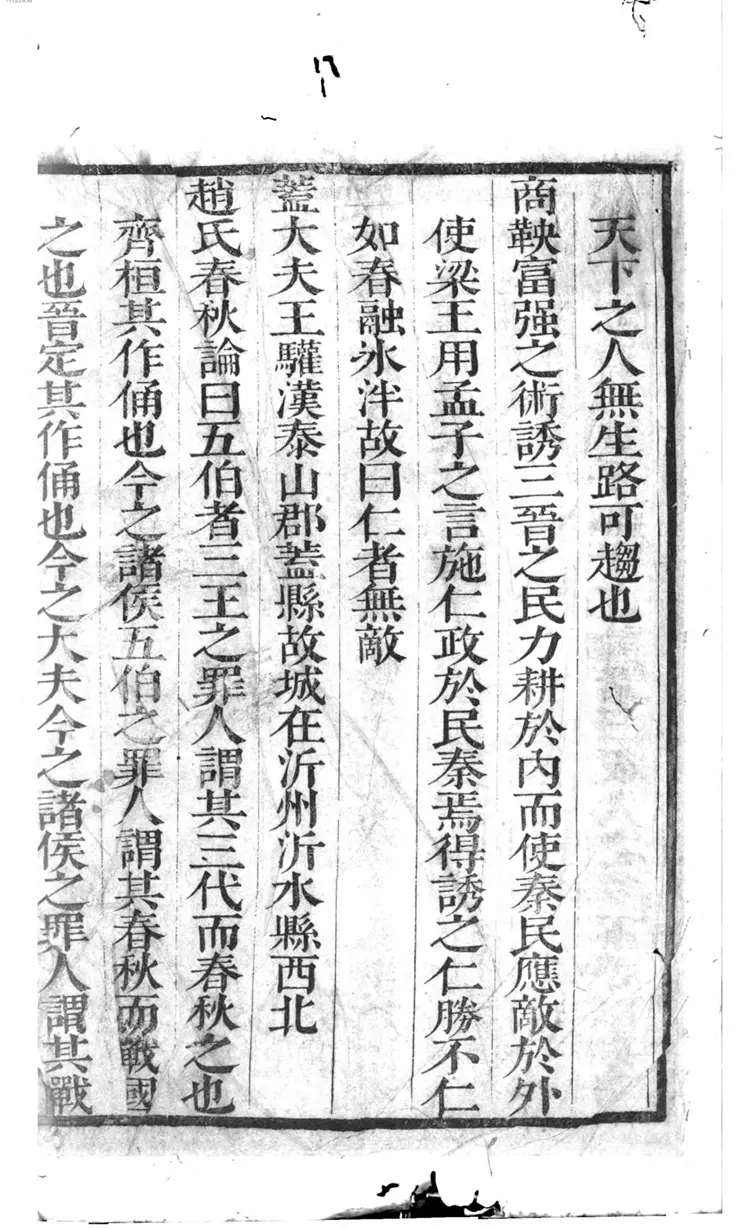 天下之人無生路可趨也
商鞅富强之術誘三晉之民力耕於内而使秦民應敵於外
使梁王用孟子之言施仁政於民秦焉得誘之仁勝不仁
如春融冰泮故曰仁者無敵
蓋大夫王驩漢泰山郡蓋縣故城在沂州沂水縣西北
趙氏春秋論曰五伯者三王之罪人謂其三代而春秋之也
齊桓其作俑也今之諸侯五伯之罪人謂其春秋而戰國
之也晉定其作俑也今之大夫今之諸侯之罪人謂其戰